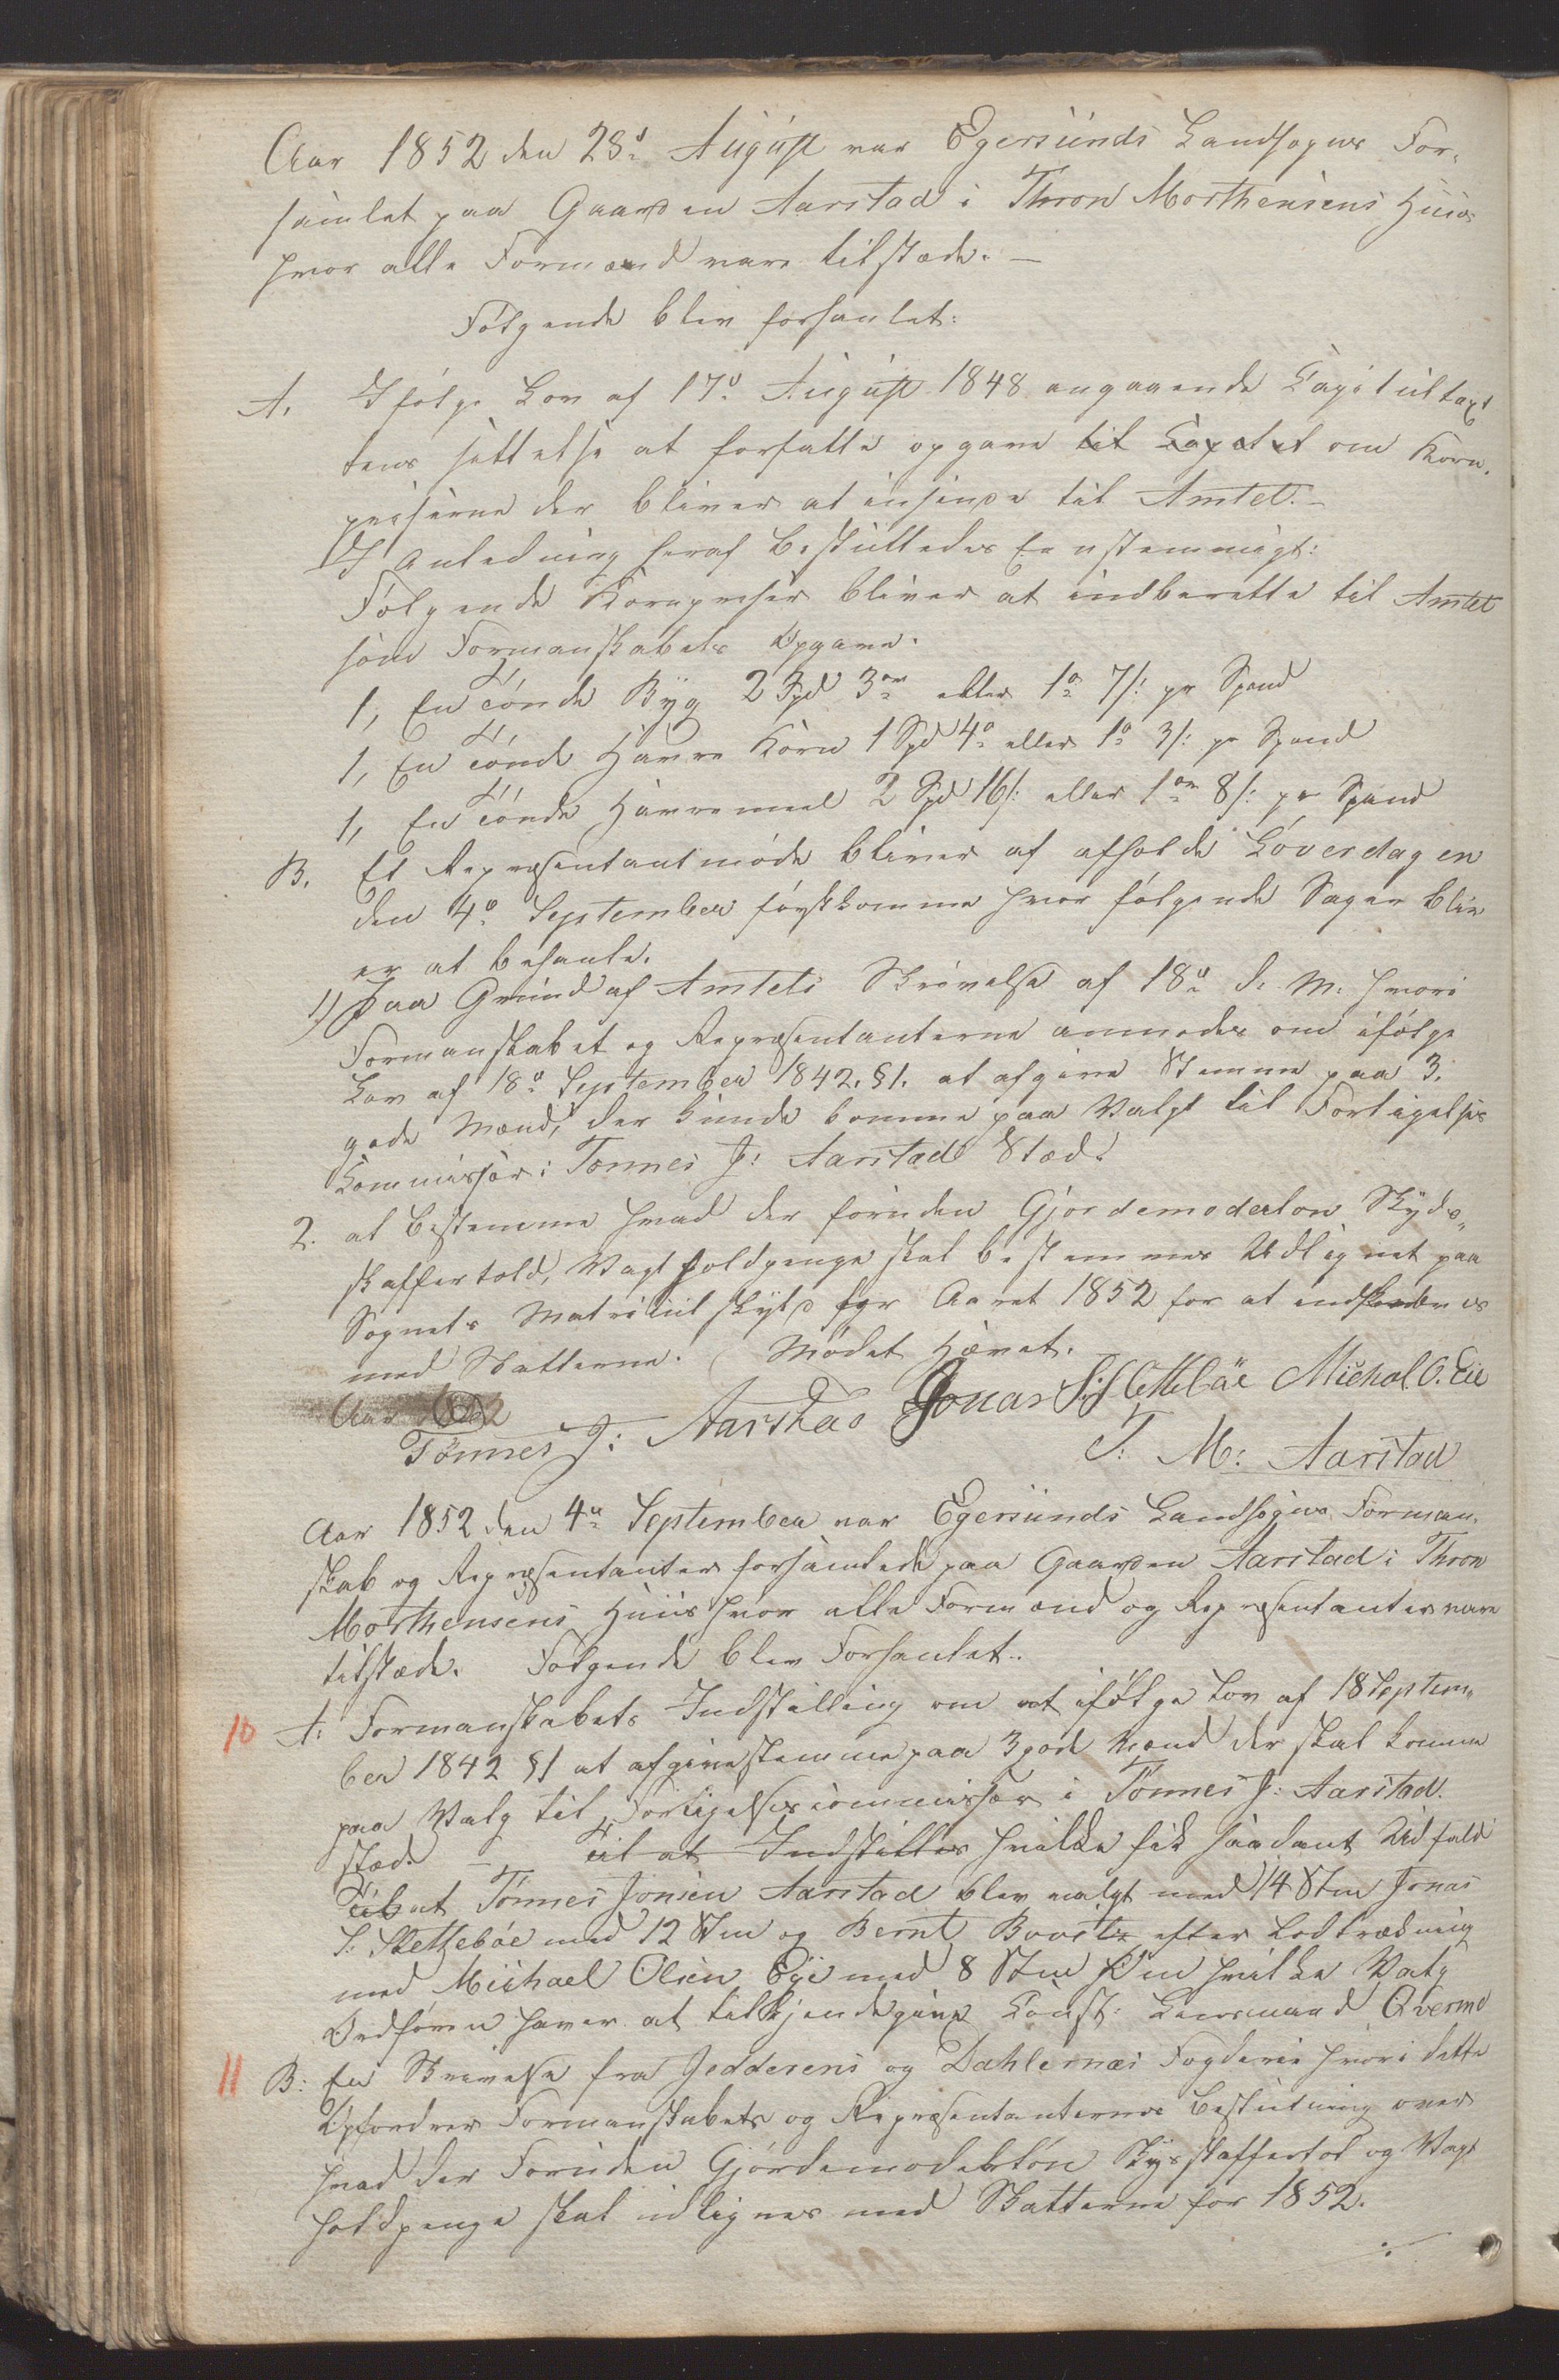 Aar 1852 den 28d August var Egersunds Landsogns For-
samlet paa Gaarden Aarstad i Thron Morthensens Huus
hvor alle Formænd vare tilstæde. —
Følgende blev forhanlet:
A. Ifølge Lov af 17d August 1848 angaaende Capitultaxt
tens settelse at forfatte opgave til Capetel om Korn-
priserne der bliver at insende til Amtet. –
I Anledning heraf besluttedes Eenstemmigt:
Følgende Kornpriser bliver at indberette til Amtet
som Formanskabets Opgave.
1, En Tønde Byg 2 Spd 3 ort eller 1 o 7 s: pr Spand
1, En Tønde Havre Korn 1 Spd 4 o eller 1 o 3 s: pr Spand
1, En Tønde Havremeel 2 Spd 16 s: eller 1 ort 8 s: pr Spand
B. Et Repræsentantmøde bliver af afholde Løverdagen
den 4d September førstkomme hvor følgende Sager bliv
er at behanle.
1) Paa Grund af Amtets Skrivelse af 18d d. M. hvori
Formanskabet og Repræsentanterne anmodes om ifølge
Lov af 18d September 1842. §1. at afgive Stemme paa 3.
gode Mænd, der kunde komme paa Valgt til Forligelses
Commissær i Tønnes J: Aarstad Stæd.
2. at bestemme hvad der foruden Gjordemoderløn Skyds-
skaffertold, Vagtholdpenge skal bestemmes Udlignet paa
Sognets Matriculskyld for Aaret 1852 for at indkræves
med Skatterne. Mødet Hævet.
Aar 1852
Tønnes J: Aarstad Jonas S: Slettebøe Michal O. Eie
T: M: Aarstad
Aar 1852 den 4d September var Egersunds Landsogns Forman-
skab og Repræsentanter forsamlede paa Gaarden Aarstad i Thron
Morthensens Huus hvor alle Formænd og Repræsentanter vare
tilstæde. Følgende blev Forhanlet.
10 A: Formanskabets Indstilling om at ifølge Lov af 18 Septem-
ber 1842 §1 at afgive Stemme paa 3 gode Mænd der skal komme
paa Valg til Forligelsescommissær i Tønnes J: Aarstad.
stæd. – Til at Indstilles hvilke fik saadant Udfald
Til at Tønnes Jonsen Aarstad blev valgt med 14 Stm Jonas
S: Slettebøe med 12 Stm og Bernt efter Lodtrækning
med Michael Olsen Eye med 8 Stm hvilke Valg
Ordføren haver at tilkjendegive Const: Lensmand Qverme
11 B: En Skrivelse fra Jedderens og Dahlernes Fogderie hvori dette
Opfordrer Formanskabets og Repræsentanternes Beslutning over
hvad der Foruden Gjordemoderløn Skysskaffertol og Vagt
holdpenge skal udlignes med Skatterne for 1852.